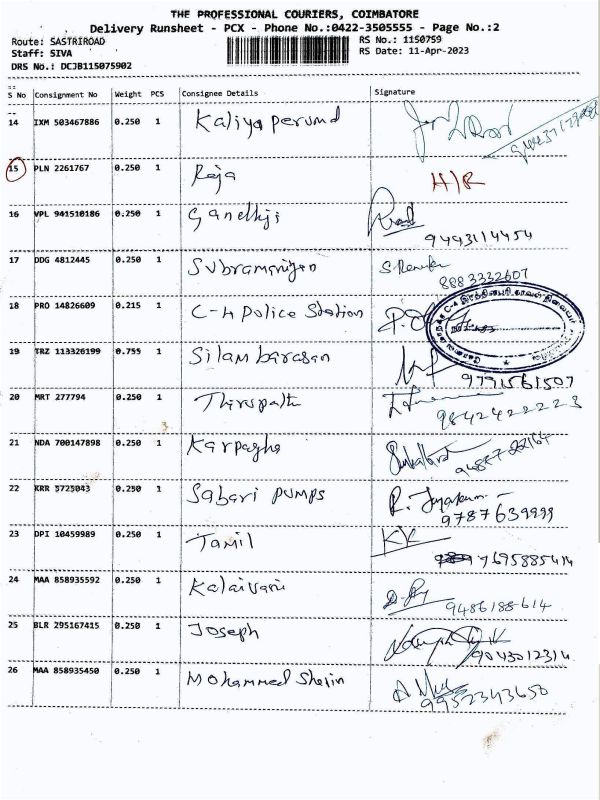 THE PROFESSIONAL COURIERS, COIMBATORE
Delivery Runsheet - PCX - Phone No.:0422-3505555 - Page No.:2
Route: SASTRIROAD RS No.: 1150759
Staff: SIVA RS Date: 11-Apr-2023
DRS No.: DCJB115075902
S No Consignment No Weight PCS Consignee Details Signature
14 IXM 503467886 0.250 1 Kaliya perumal
15 PLN 2261767 0.250 1 Raja H/R
16 VPL 941510186 0.250 1 Gandhiji
9493114454
17 DDG 4812445 0.250 1 Subramaniyan S. Renuka
8883332607
18 PRO 14826609 0.215 1 C-4 Police Station
19 TRZ 113326199 0.755 1 Silambarasan
9791561507
20 MRT 277794 0.250 1 Thirupathi
9842422223
21 NDA 700147898 0.250 1 Karpagha
22 KRR 5725043 0.250 1 Sabari PUMPS R. Jayakumar
9787639999
23 DPI 10459989 0.250 1 Tamil KK
7695885414
24 MAA 858935592 0.250 1 Kalaivani
9486188614
25 BLR 295167415 0.250 1 Joseph
9043012314
26 MAA 858935450 0.250 1 Mohammed Sherin
9952343650